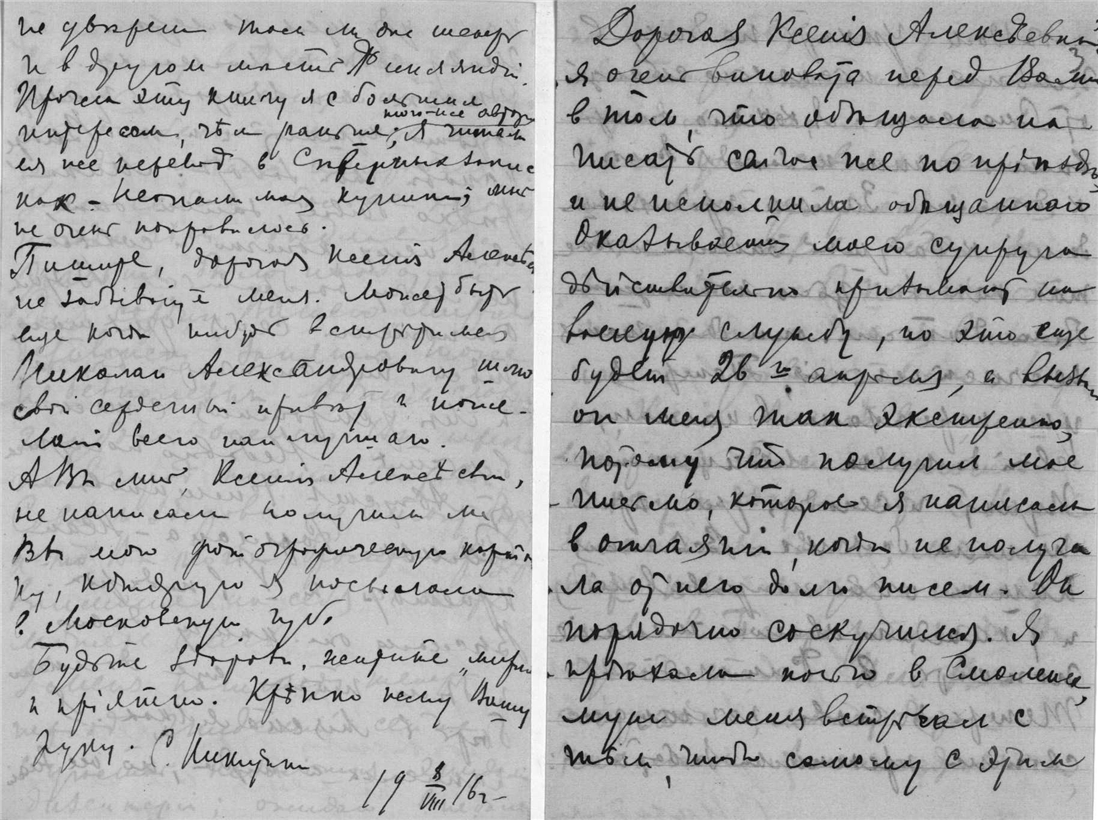 не уверена там ли она теперь
и в другом месте Финляндии.
Прочла эту книгу я с большим
интересом, чем раньше; я читала
того-же автора
ея же перевод в Северных запис
ках – Неопалимая купина; мне
не очень понравилось.
Пишите, дорогая Ксенія Алексѣев
не забывайте меня. Может быть
еще когда нибудь встретимся
Николаю Александровичу шлю
свой сердечный привѣт и поже-
ланій всего наилучшаго.
А Вы мнѣ Ксенія Алексѣевна,
не написали получили ли
Вы мою фотографическую карточ
ку, которую я посылала
в Московскую губ.
Будьте здоровы, живите „мирно
и пріятно. Крѣпко жму Вашу
руку. С. Никитина
19 8/III 16 г-
Дорогая Ксенія Алексѣевна
я очень виновата перед Вами
в том, что обѣщала на
писать сейчас же по пріѣздѣ
и не исполнила обѣщаннаго
Оказывается моего супруга
дѣйствительно призывают на
военную службу, но это еще
будет 26 г. апрѣля, а вызвал
он меня так экстренно,
потому что получил мое
письмо, которое я написала
в отчаяніи когда не получа
ла от него долго писем. Он
порядочно соскучился. Я
пріѣхала ночью в Смоленск,
муж меня встрѣчал с
тѣм, чтобы самому с этим